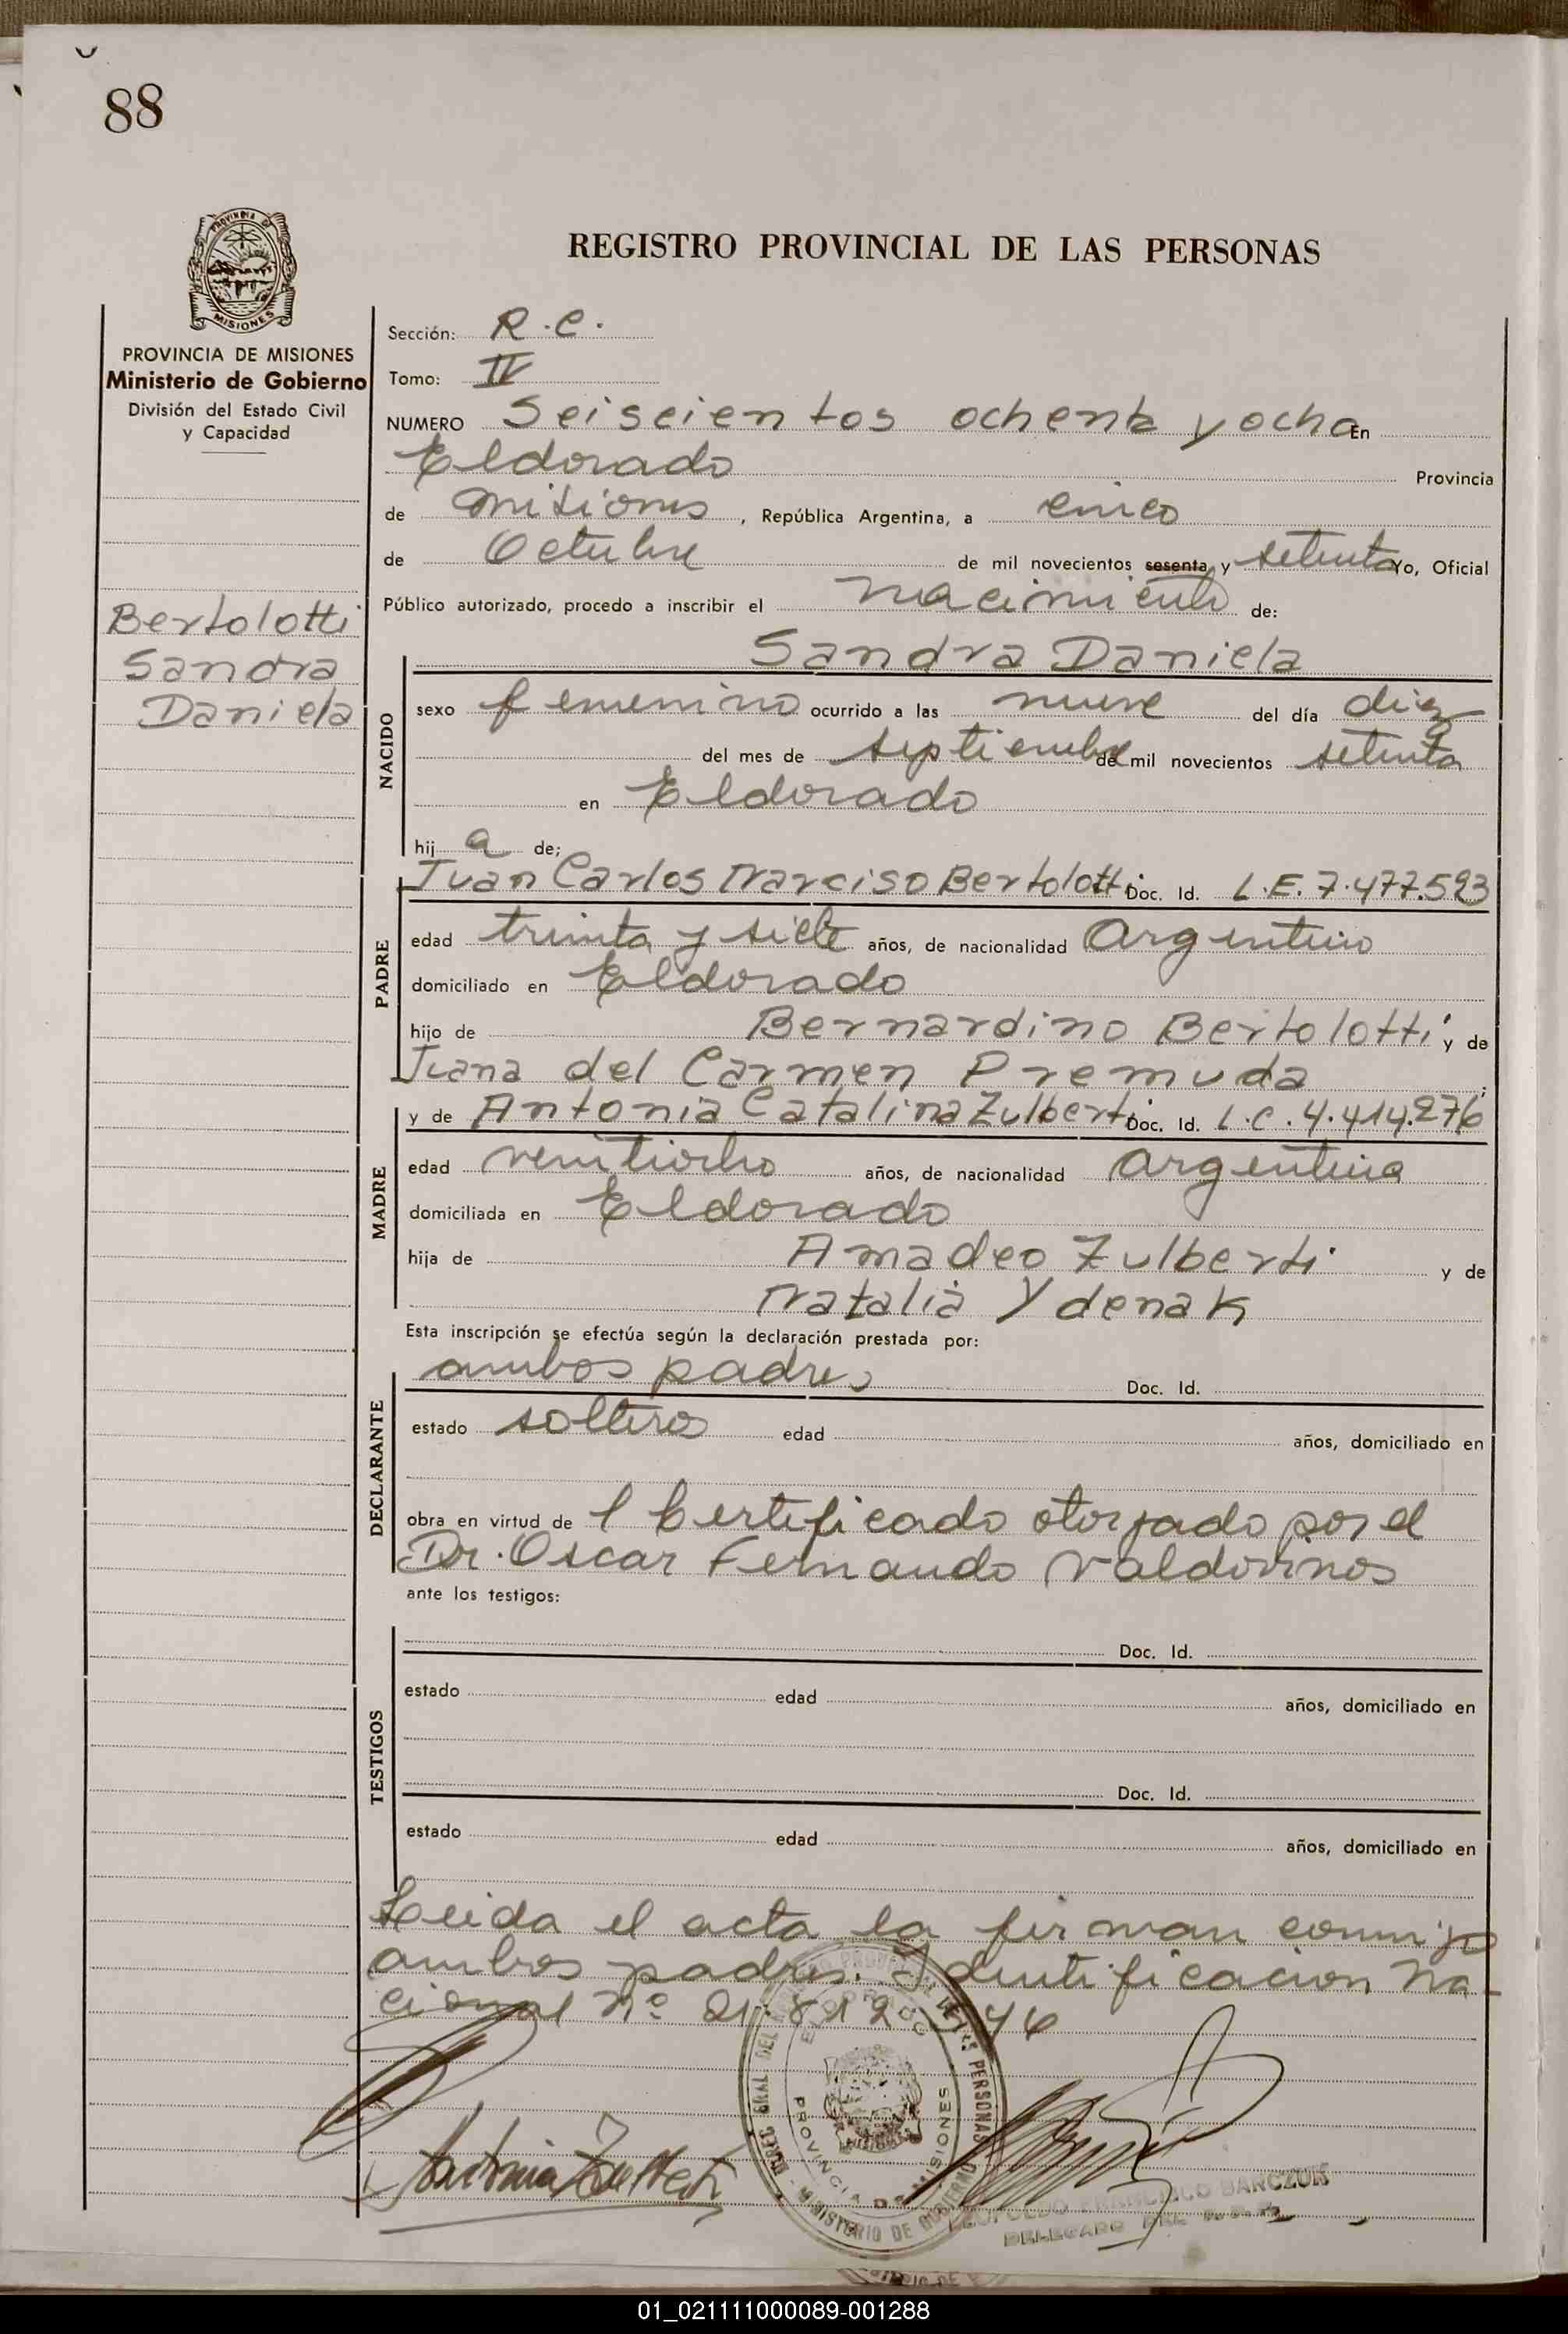 88
PROVINCIA DE
MISIONES
REGISTRO PROVINCIAL DE LAS PERSONAS
PROVINCIA DE MISIONES
Ministerio de Gobierno
División del Estado Civil
y Capacidad
Bertolotti
Sandra
Daniela
Sección: R.C.
Tomo: IV
NUMERO Seiscientos ochenta y ocho En
Eldorado Provincia
de Misiones, República Argentina, a cinco
de Octubre de mil novecientos sesenta y setenta Yo, Oficial
Público autorizado, procedo a inscribir el nacimiento de:
Sandra Daniela
NACIDO
sexo femenino ocurrido a las nueve del día diez
del mes de septiembre de mil novecientos setenta
en Eldorado
hij a de;
PADRE
Juan Carlos Narciso Bertolotti Doc. Id. L.E. 7.477.593
edad treinta y siete años, de nacionalidad Argentino
domiciliado en Eldorado
hijo de Bernardino Bertolotti y de
Juana del Carmen Premuda;
MADRE
y de Antonia Catalina Zulberti Doc. Id. L.C. 4.414.276
edad veintiocho años, de nacionalidad argentina
domiciliada en Eldorado
hija de Amadeo Zulberti y de
Natalia Ydenak
Esta inscripción se efectúa según la declaración prestada por:
DECLARANTE
ambos padres Doc. Id.
estado solteros edad años, domiciliado en
obra en virtud de l Certificado otorgado por el
Dr. Oscar Fernando Valdovinos
ante los testigos:
TESTIGOS
Doc. Id.
estado edad años, domiciliado en
Doc. Id.
estado edad años, domiciliado en
Leida el acta la firman conmigo
ambos padres. Identificacion Na-
cional nº 21.812.
Antonia Zulberti
ELDORADO
PROVINCIA DE MISIONES
MINISTERIO DE GOBIERNO
LEOPOLDO FRANCISCO BARCZUK
DELEGADO DEL
01_021111000089-001288